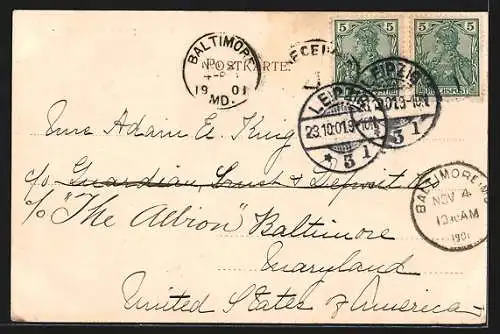 BALTIMORE
NOV 4
1901
MD.
RECEIVED
POSTKARTE.
5 5
5 5
REICHSPOST
LEIPZIG
23.10.01.9-10V.
3 1
LEIPZIG
3 1
Miss Adam E. King
c/o Guardian Trust & Deposit
c/o "The Albion" Baltimore
Maryland
United States of America
BALTIMORE, MD.
NOV 4
10 AM
1901